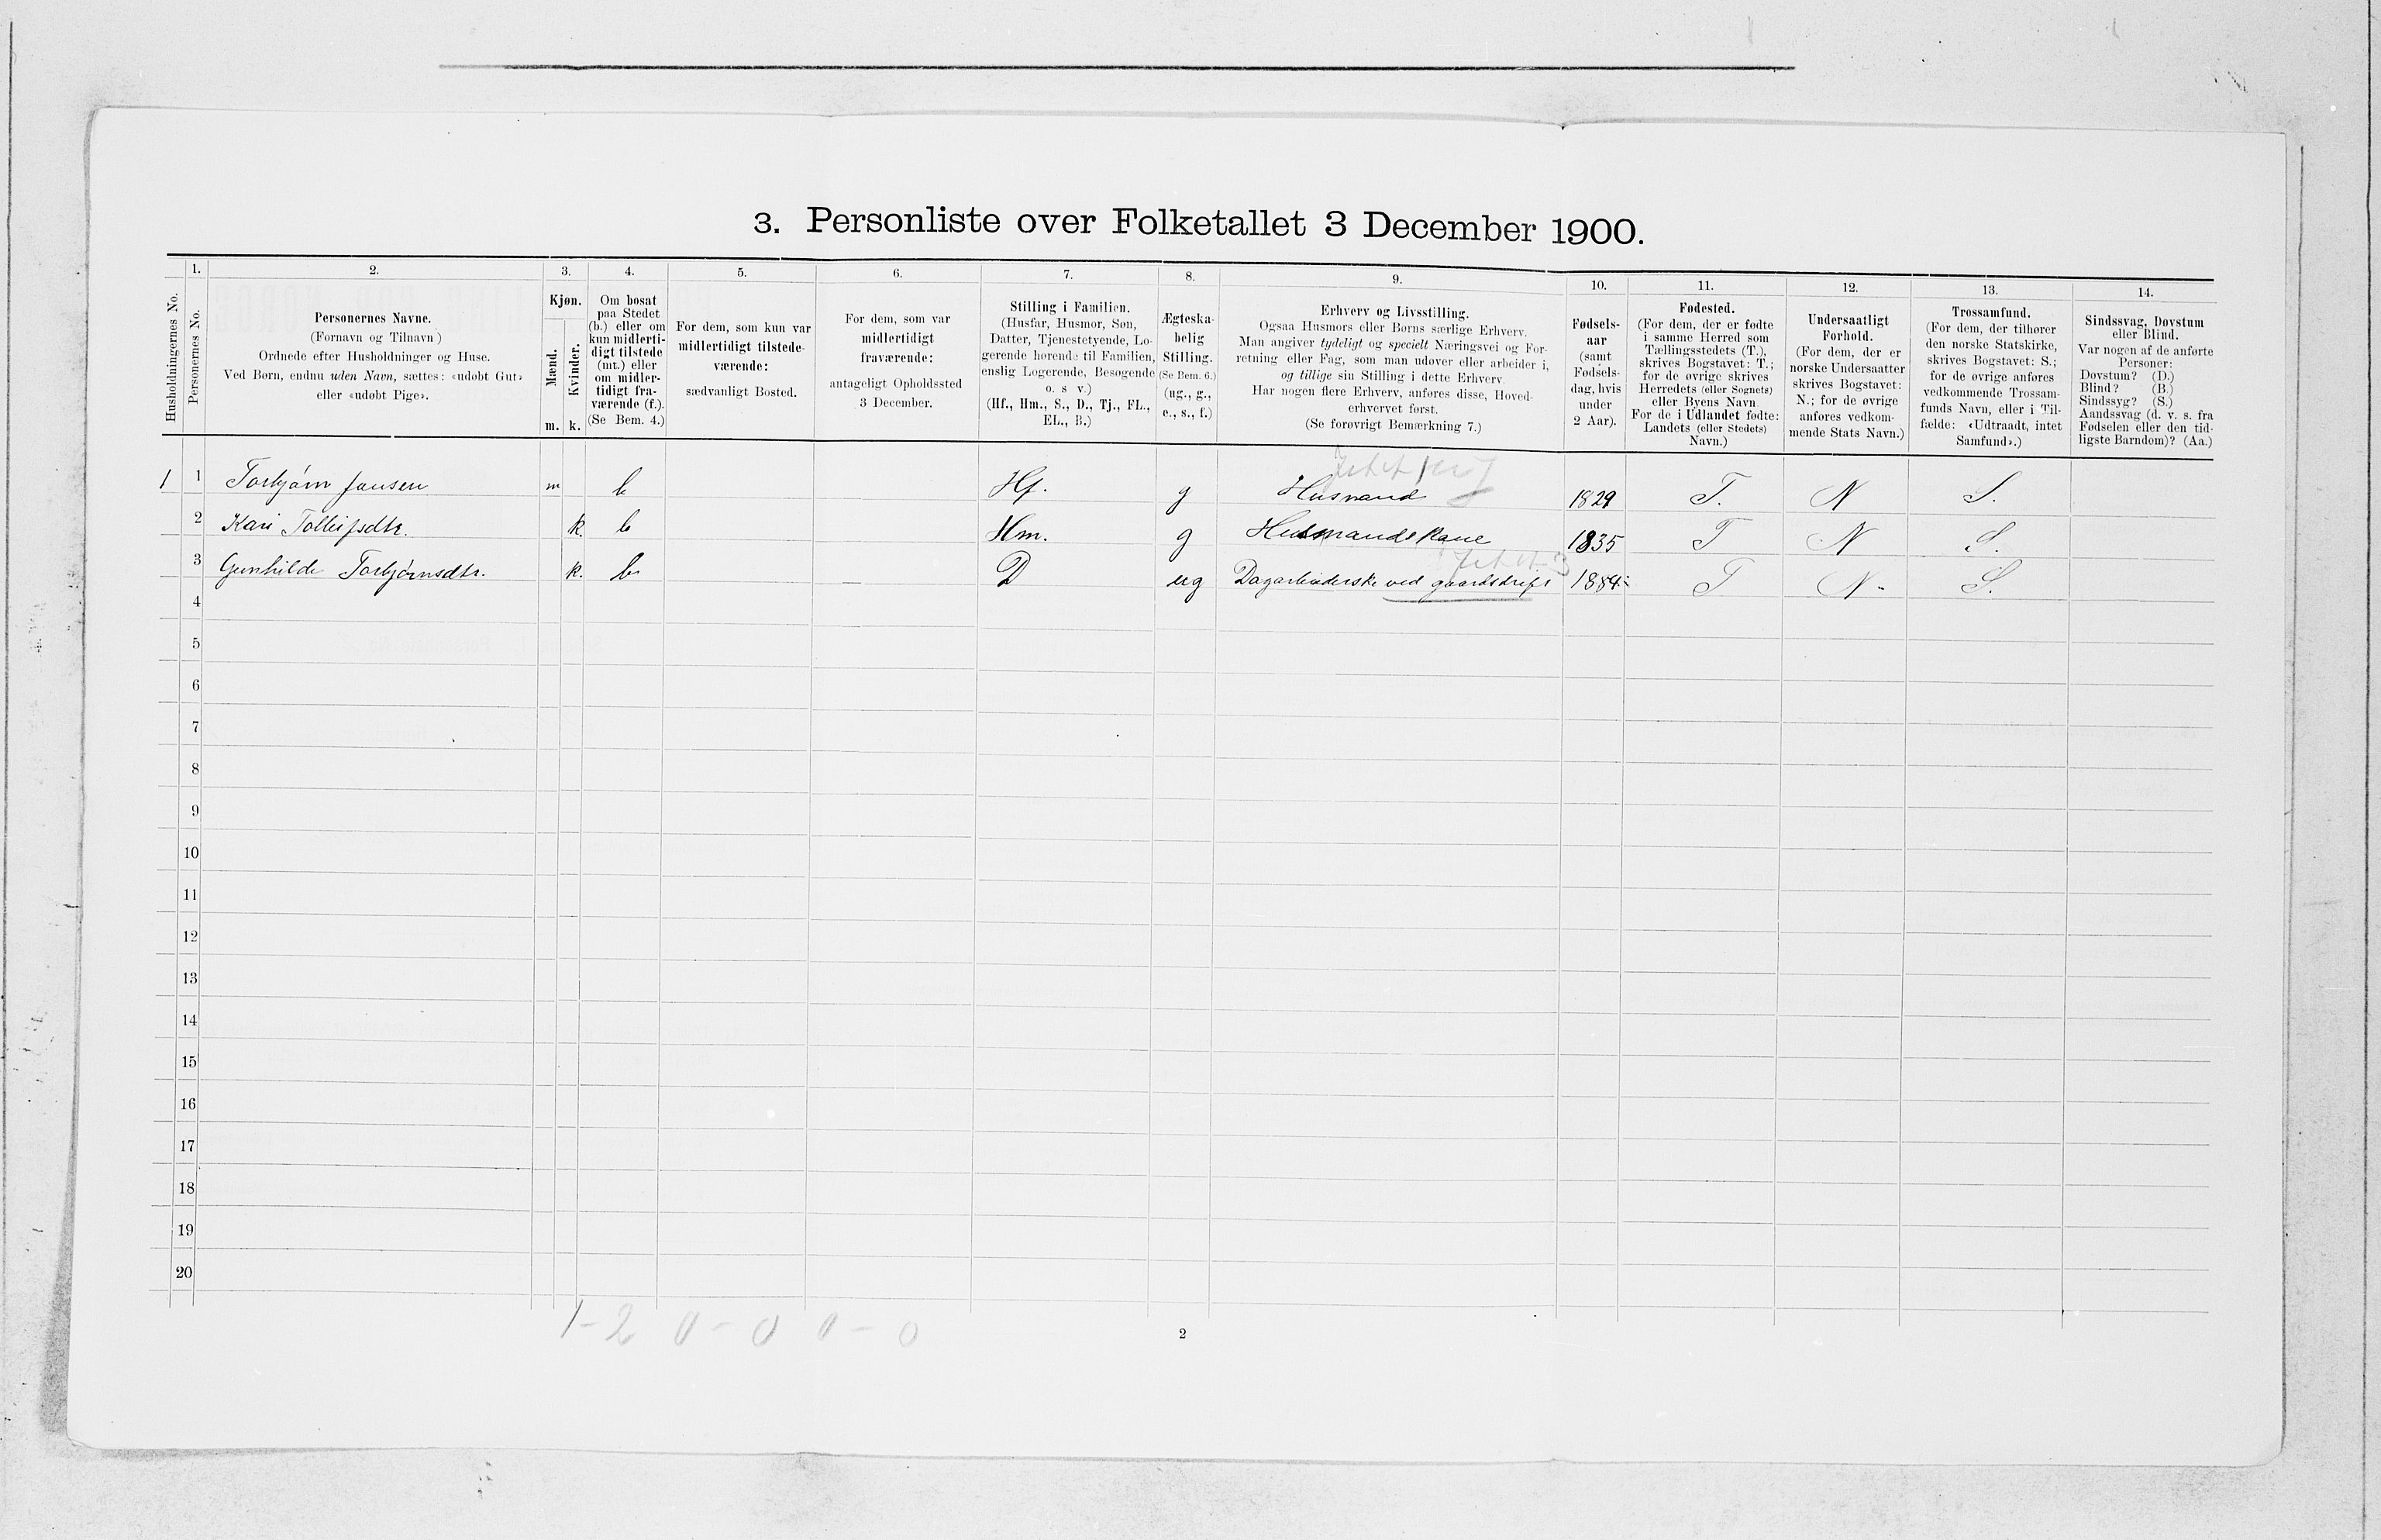 3. Personliste over Folketallet 3 December 1900.
1. 2. 3. 4. 5. 6. 7. 8. 9. 10. 11. 12. 13. 14.
Husholdningernes No.
Personernes No.
Personernes Navne.
(Fornavn og Tilnavn)
Ordnede efter Husholdninger og Huse.
Ved Børn, endnu uden Navn, sættes: «udøbt Gut»
eller «udøbt Pige».
Kjøn.
Mænd.
Kvinder.
m. k.
Om bosat
paa Stedet
(b.) eller om
kun midlerti-
digt tilstede
(mt.) eller
om midler-
tidigt fra-
værende (f.).
(Se Bem. 4.)
For dem, som kun var
midlertidigt tilstede-
værende:
sædvanligt Bosted.
For dem, som var
midlertidigt
fraværende:
antageligt Opholdssted
3 December.
Stilling i Familien.
(Husfar, Husmor, Søn,
Datter, Tjenestetyende, Lo-
gerende hørende til Familien,
enslig Logerende, Besøgende
o. s v.)
(Hf., Hm., S., D., Tj., FL.,
EL., B.)
Ægteska-
belig
Stilling.
(Se Bem. 6.)
(ug., g.,
e., s., f.)
Erhverv og Livsstilling.
Ogsaa Husmors eller Børns særlige Erhverv.
Man angiver tydeligt og specielt Næringsvei og For-
retning eller Fag, som man udøver eller arbeider i,
og tillige sin Stilling i dette Erhverv.
Har nogen flere Erhverv, anføres disse, Hoved-
erhvervet først.
(Se forøvrigt Bemærkning 7.)
Fødsels-
aar
(samt
Fødsels-
dag, hvis
under
2 Aar).
Fødested.
(For dem, der er fødte
i samme Herred som
Tællingsstedets (T.),
skrives Bogstavet: T.;
for de øvrige skrives
Herredets (eller Sognets)
eller Byens Navn
For de i Udlandet fødte:
Landets (eller Stedets)
Navn.)
Undersaatligt
Forhold.
(For dem, der er
norske Undersaatter
skrives Bogstavet:
N.; for de øvrige
anføres vedkom-
mende Stats Navn.)
Trossamfund.
(For dem, der tilhører
den norske Statskirke,
skrives Bogstavet: S.;
for de øvrige anføres
vedkommende Trossam-
funds Navn, eller i Til-
fælde: «Udtraadt, intet
Samfund».)
Sindssvag, Døvstum
eller Blind.
Var nogen af de anførte
Personer:
Døvstum? (D.)
Blind? (B.)
Sindssyg? (S.)
Aandssvag (d. v. s. fra
Fødselen eller den tid-
ligste Barndom)? (Aa.)
1 1 Torbjørn Jansen m b Hf. g Husmand 1829 T. N S.
2 Kari Tollefsdtr. k. b Hm. g Husmandskone 1835 T N S.
3 Gunhilde Torbjørnsdtr. k. b D ug Dagarbeiderske ved gaardsdrift 1884 T N - S.
4
5
6
7
8
9
10
11
12
13
14
15
16
17
18
19
20
1-2 0-0 0-0
2